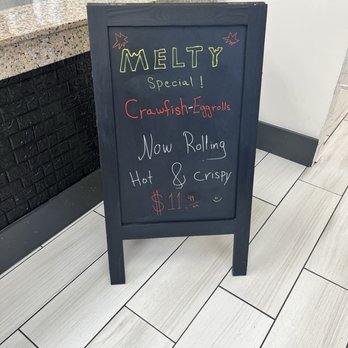 MELTY
Special!
Crawfish-Eggrolls
Now Rolling
Hot & Crispy
$11.